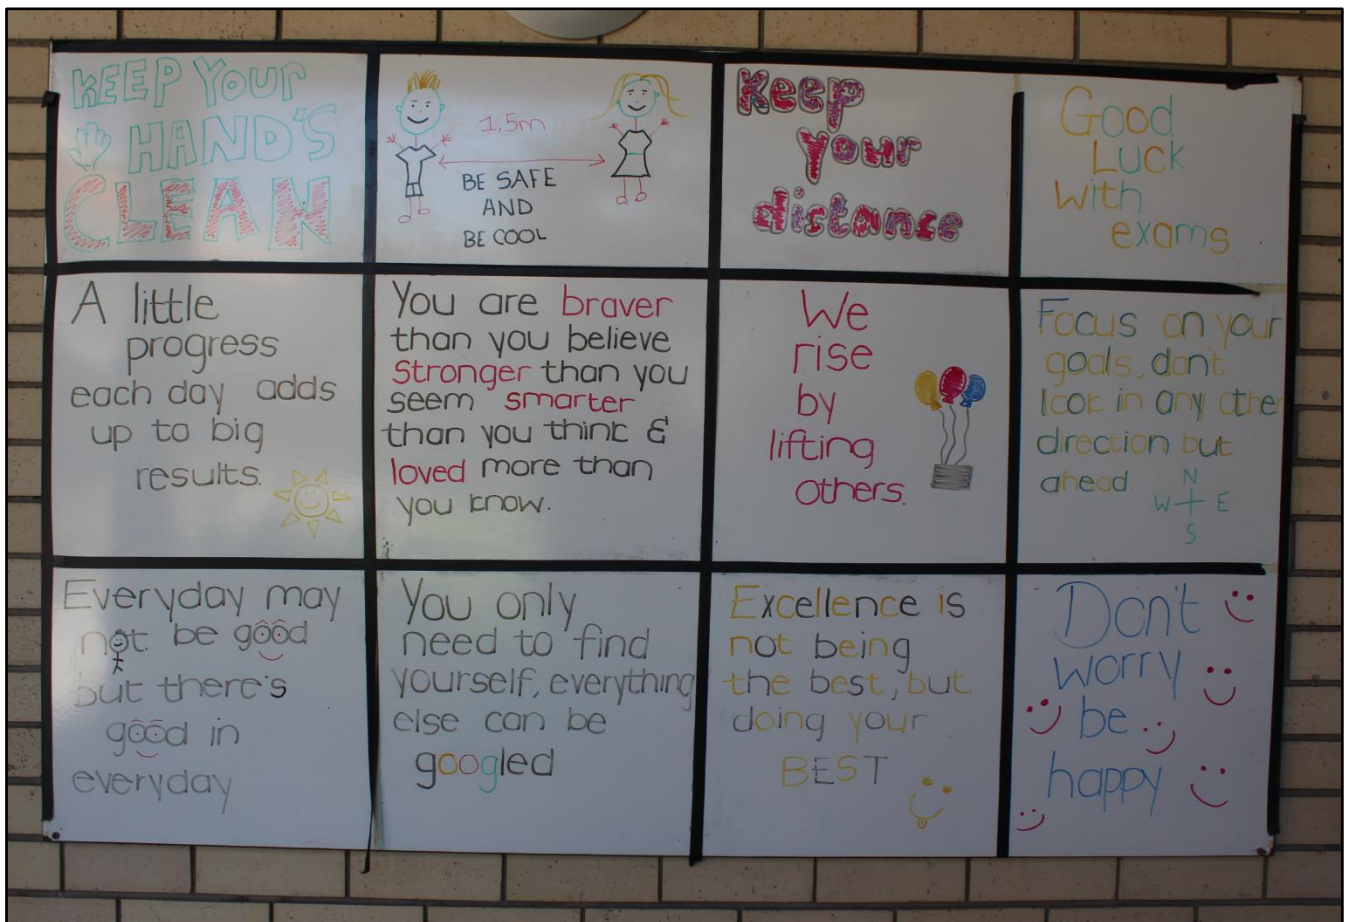 KEEP YOUR
HAND'S
CLEAN
1,5m
BE SAFE
AND
BE COOL
Keep
Your
distance
Good
Luck
With
exams
A little
progress
each day adds
up to big
results.
You are braver
than you believe
Stronger than you
seem smarter
than you think &
loved more than
you know.
We
rise
by
lifting
others.
Focus on your
goals, don't
look in any other
direction but
ahead.
N
W E
S
Everyday may
not be good
but there's
good in
everyday
You only
need to find
yourself, everything
else can be
googled
Excellence is
not being
the best, but
doing your
BEST
Don't
worry
be
happy